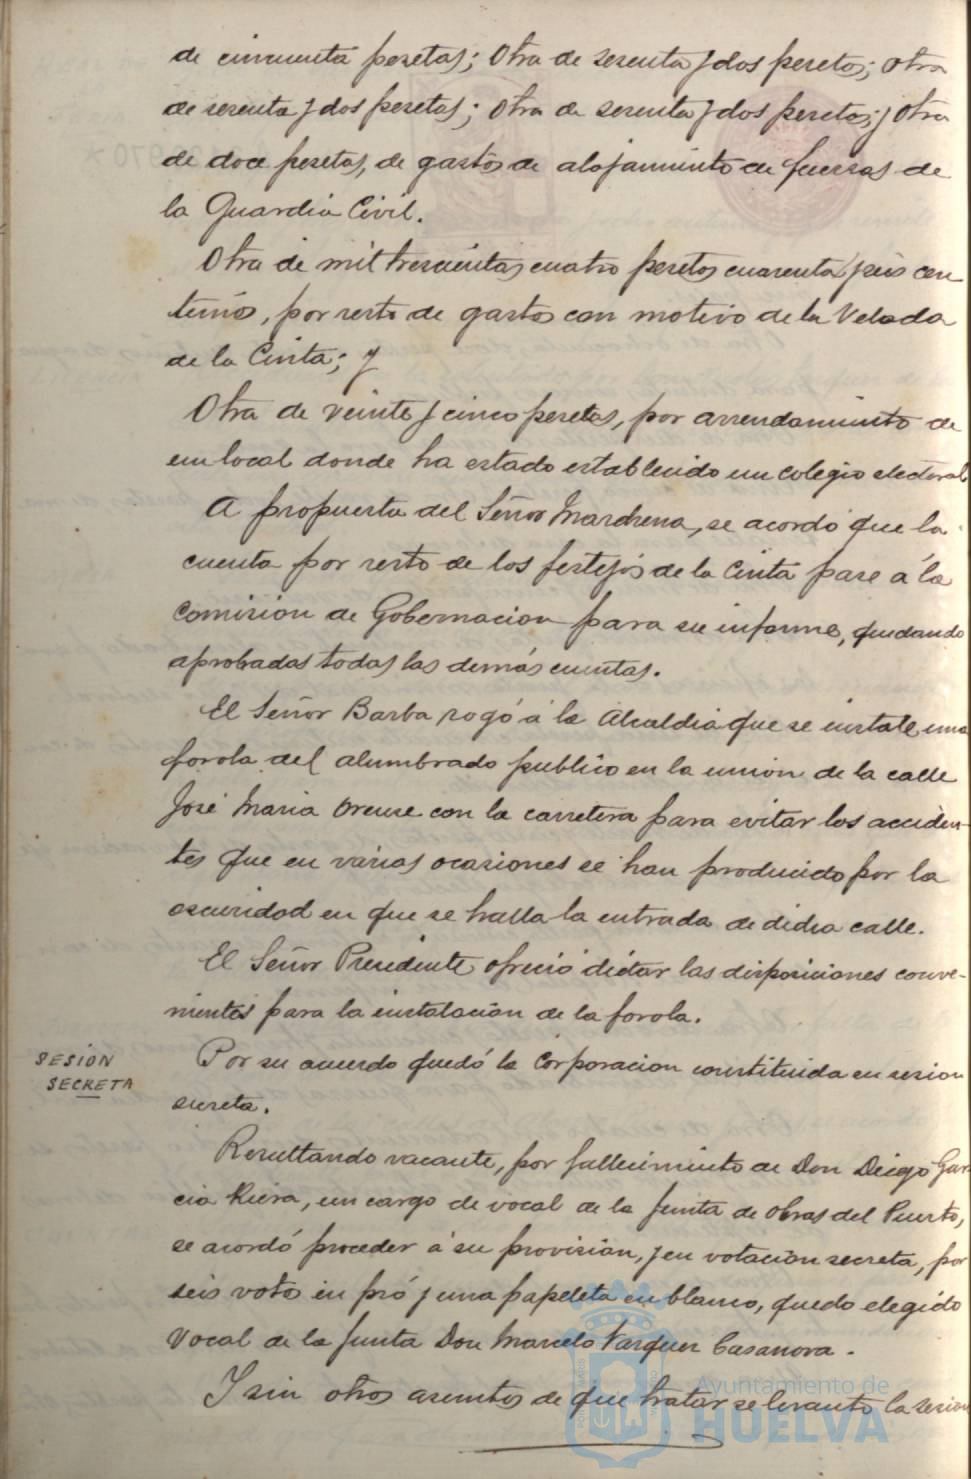 de cincuenta pesetas; Otra de sesenta y dos pesetas; otra
de sesenta y dos pesetas; Otra de sesenta y dos pesetas; y Otra
de doce pesetas, de gastos de alojamiento de fuerzas de
la Guardia Civil.
Otra de mil trescientas cuatro pesetas cuarenta y seis cen
timos, por resto de gastos con motivo de la Velada
de la Cinta; y
Otra de veinte y cinco pesetas, por arrendamiento de
un local donde ha estado establecido un colegio electoral.
A propuesta del Señor Marchena, se acordó que la
cuenta por resto de los festejos de la Cinta pase á la
Comision de Gobernacion para su informe, quedando
aprobadas todas las demás cuentas.
El Señor Barba rogó á la Alcaldia que se instale una
farola del alumbrado publico en la union de la calle
José Maria Orense con la carretera para evitar los acciden-
tes que en varias ocasiones se han producido por la
oscuridad en que se halla la entrada de dicha calle.
El Señor Presidente ofreció dictar las disposiciones conve-
nientes para la instalación de la farola.
SESIÓN
SECRETA
Por su acuerdo quedó la Corporacion constituida en sesion
secreta.
Resultando vacante, por fallecimiento de Don Diego Gar
cia Riera, un cargo de vocal de la Junta de Obras del Puerto,
se acordó proceder á su provision, y en votación secreta, por
seis votos en pró y una papeleta en blanco, quedo elegido
Vocal de la Junta Don Marcelo Vazquez Casanova.
Y sin otros asuntos de que tratar se levanto la sesion
Ayuntamiento de
HUELVA